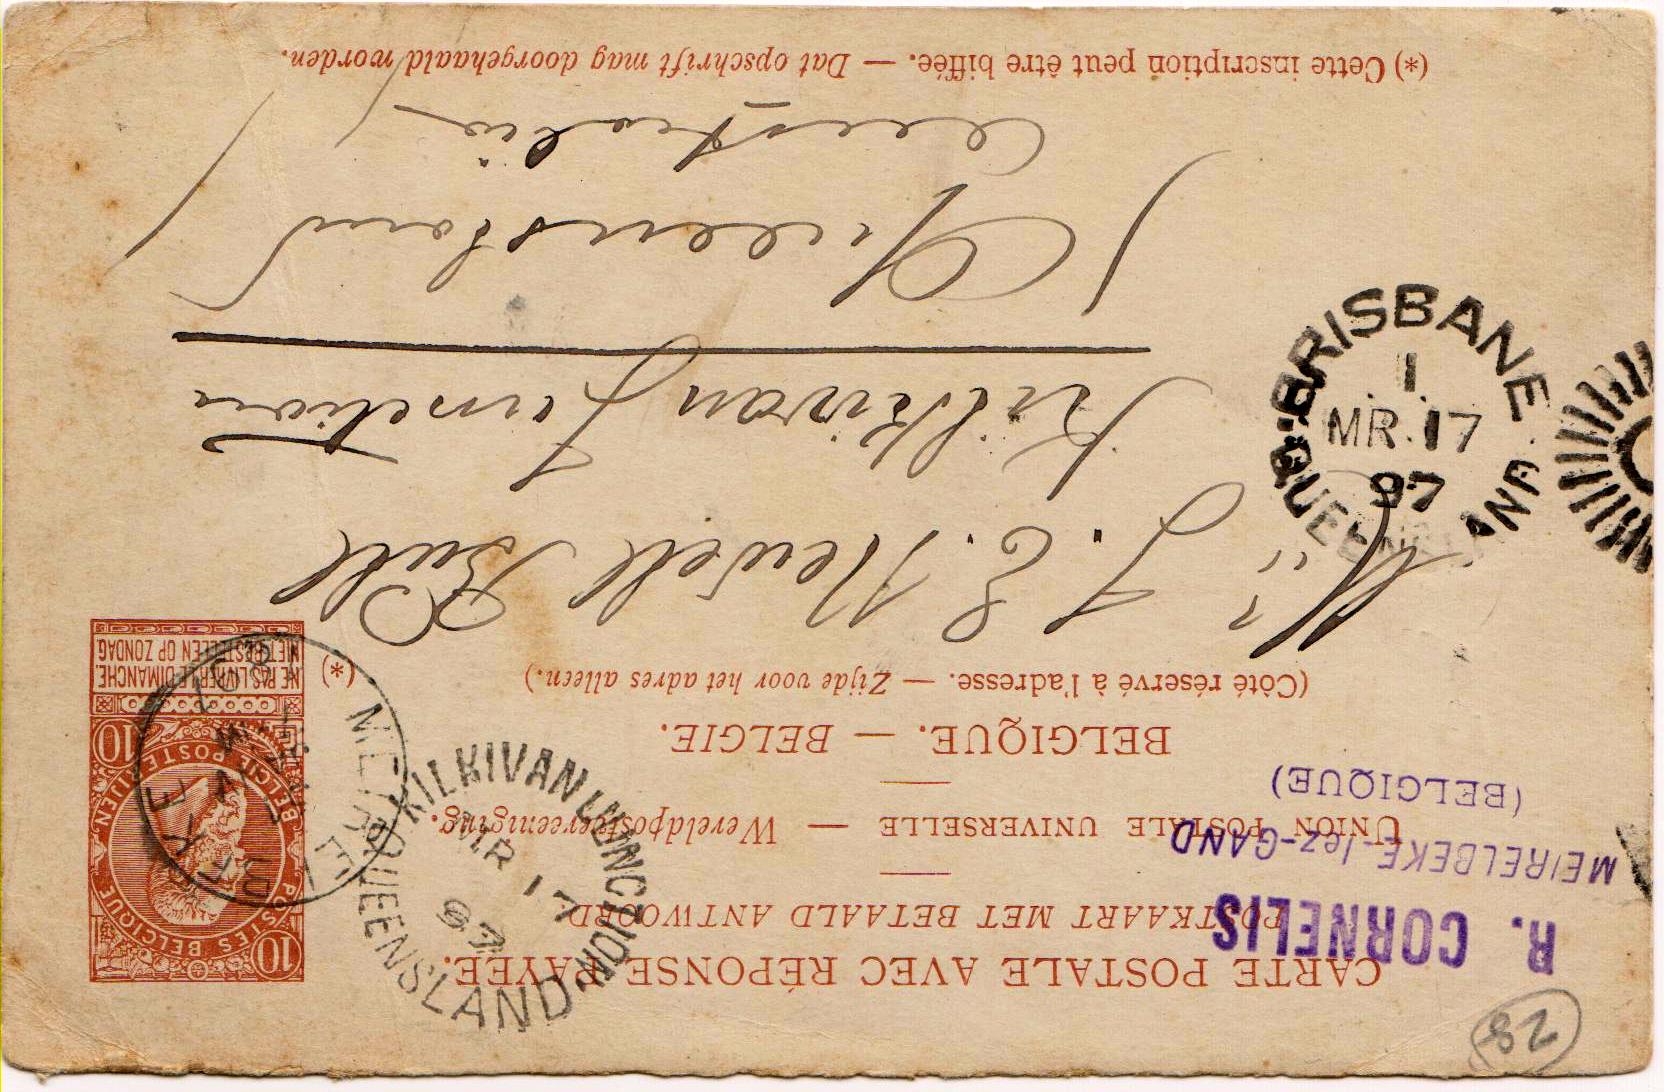 CARTE POSTALE AVEC RÉPONSE PAYÉE.
POSTKAART MET BETAALD ANTWOORD
UNION POSTALE UNIVERSELLE — Wereldpostvereeniging.
BELGIQUE. — BELGIE.
(Côté réservé à l'adresse. — Zijde voor het adres alleen.)
(*)
R. CORNELIS
MEIRELBEKE-lez-GAND
(BELGIQUE)
POSTES BELGIQUE
BELGIE POSTERIJEN
10 10
NE PAS LIVRER LE DIMANCHE.
NIET BESTELLEN OP ZONDAG.
MEIRELBEKE
KILKIVAN JUNCTION
MR 17
97
QUEENSLAND
BRISBANE
1
MR. 17
97
QUEENSLAND
Mr J. E. Newell Bull
Kilkivan Junction
Queensland
Australia
(*) Cette inscription peut être biffée. — Dat opschrift mag doorgehaald worden.
28